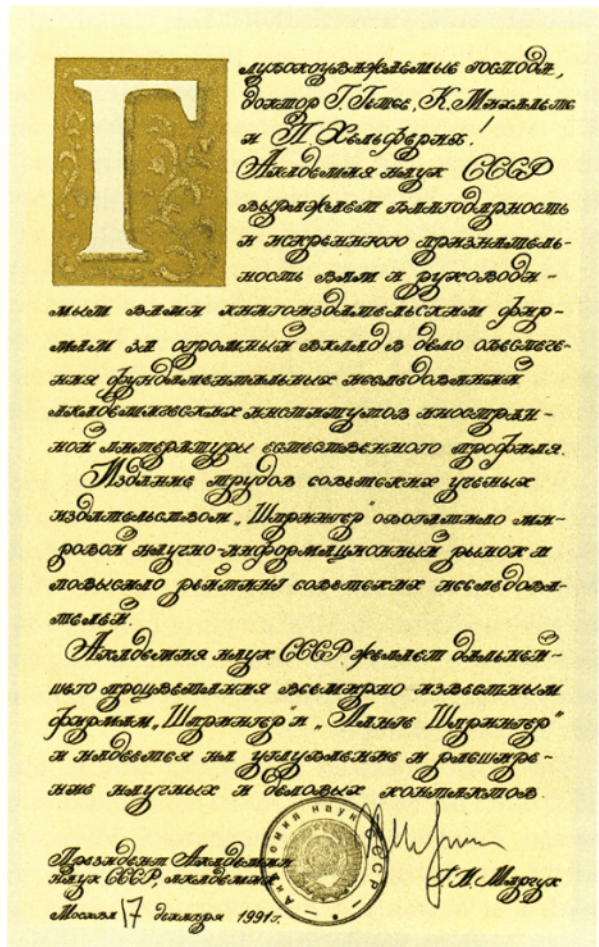 Глубокоуважаемые господа,
доктор Г. Гетце, К. Михалетс
и П. Хельферих!
Академия наук СССР
выражает благодарность
и искреннюю признатель-
ность вам и руководи-
мым вами книгоиздательским фир-
мам за огромный вклад в дело обеспече-
ния фундаментальных исследований
академических институтов иностран-
ной литературы естественного профиля.
Издание трудов советских ученых
издательством „Шпрингер" обогатило ми-
ровой научно-информационный рынок и
повысило рейтинг советских исследова-
телей.
Академия наук СССР желает дальней-
шего процветания всемирно известным
фирмам „Шпрингер" и „Ланге Шпрингер"
и надеется на углубление и расшире-
ние научных и деловых контактов.
Академия наук СССР
Президент Академии
наук СССР, академик
Г.И. Марчук
Москва 17 декабря 1991г.